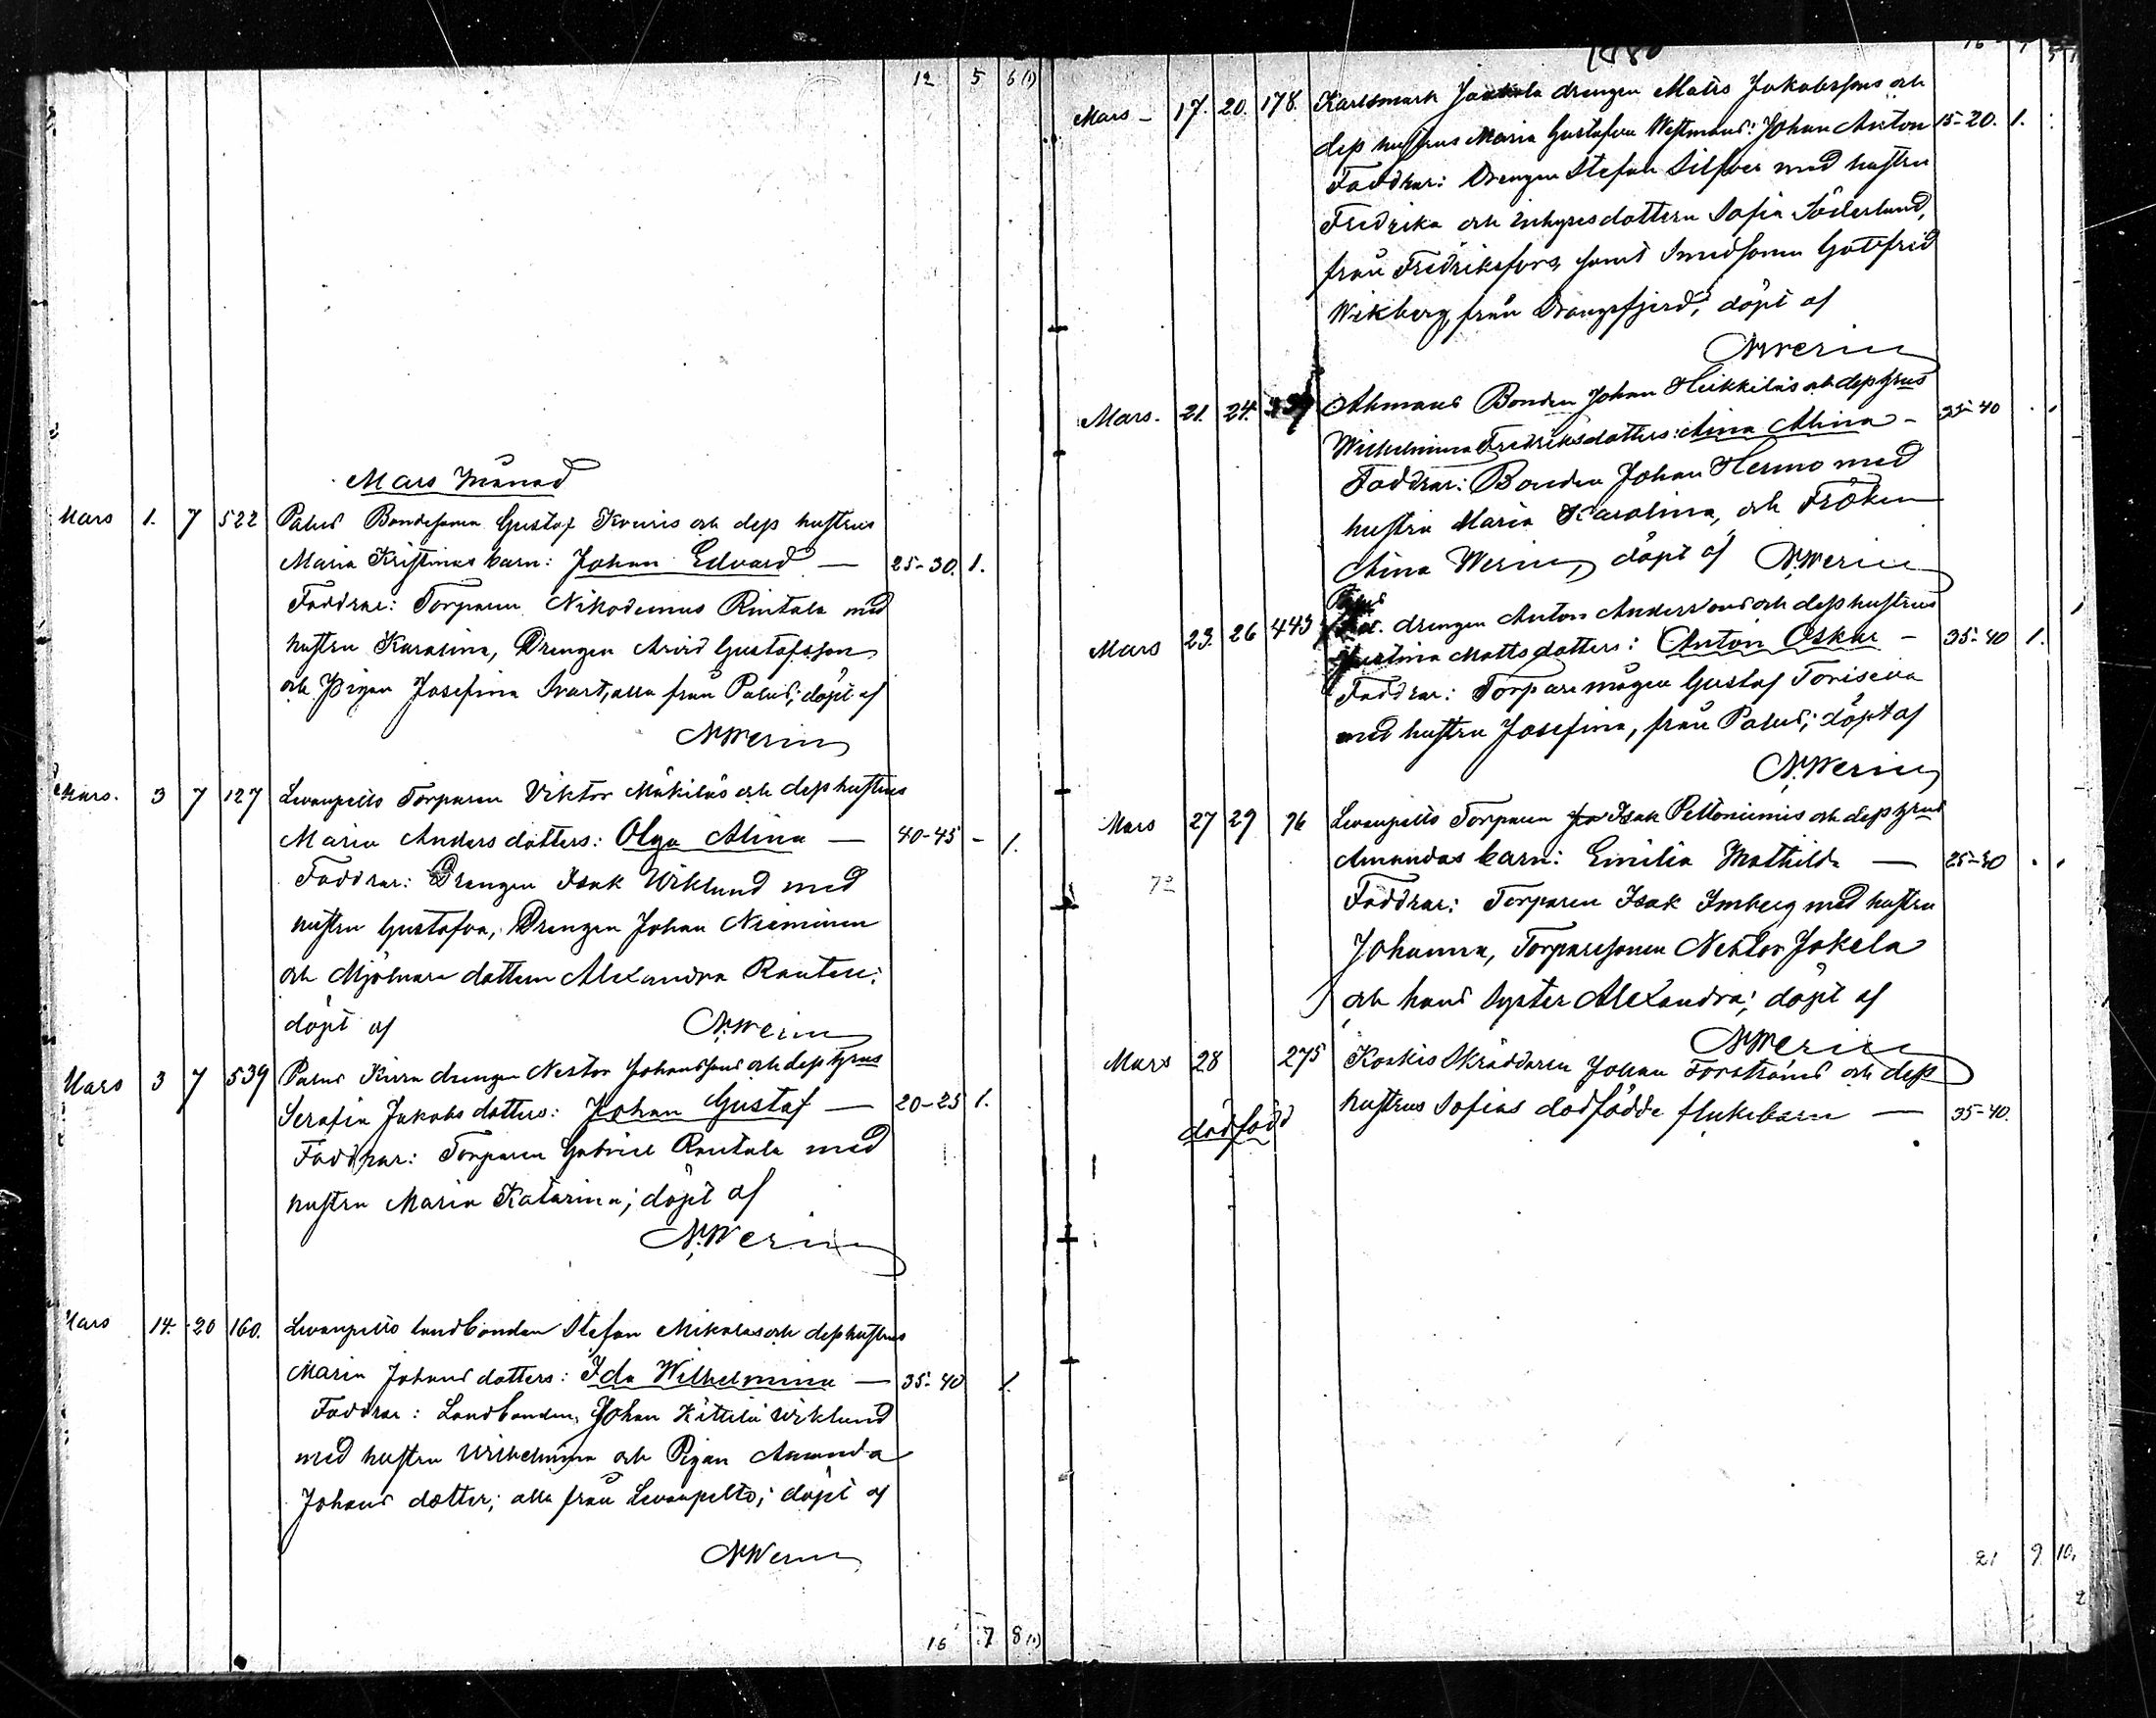 12 5 6 (1)
Mars Månad
Mars 1. 7 522 Palus Bondesonen Gustaf Knuris och dess hustrus
Maria Kristinas barn: Johan Edvard — 25-30. 1.
Faddrar: Torparen Nikodemus Rintala med
hustru Karolina, Drengen Arvid Gustafsson
och Pigan Josefina Svart, alla från Palus; döpt af
N. Werin
Mars. 3 7 127 Levanpelto Torparen Viktor Mäkiläs och dess hustrus
Maria Andersdotters: Olga Alina — 40-45 - 1.
Faddrar: Drengen Isak Wiklund med
hustru Gustafva, Drengen Johan Nieminen
och Mjölnare dottern Alexandra Rauten;
döpt af N. Werin
Mars 3 7 539 Palus Kiira drengen Nestor Johanssons och dess hustrus
Serafia Jakobsdotters: Johan Gustaf — 20-25 1.
Faddrar: Torparen Gabriel Rautala med
hustru Maria Katarina; döpt af
N. Werin
Mars 14. 20 160. Levanpelto landbonden Stefan Mikolas och dess hustrus
Maria Johansdotters: Ida Wilhelmina — 35-40 1.
Faddrar: Landbonden Johan Kittilä Wiklund
med hustru Wilhelmina och Pigan Amanda
Johans dotter; alla från Levanpelto; döpt af
N. Werin
16 7 8 (1)
1880
16 7
Mars - 17. 20. 178. Karlsmark Jaakola drengen Matts Jakobssons och
dess hustrus Maria Gustafva Westmans: Johan Anton 15-20. 1.
Faddrar: Drengen Stefan Silfver med hustru
Fredrika och Inhysesdottern Sofia Söderlund,
från Fredriksfors, samt Smedsonen Gottfrid
Wikberg, från Drangsfjerd; döpt af
N. Werin
Mars. 21. 24. Ahmaus Bonden Johan Heikkiläs och dess hustrus
Wilhelmina Fredriksdotters: Aina Alina - 35-40
Faddrar: Bonden Johan Hermo med
hustru Maria Karolina, och Fröken
Aina Werin, döpt af N. Werin
Mars 23. 26 443 Palus drengen Anton Anderssons och dess hustrus
Justina Mattsdotters: Anton Oskar - 35-40 1.
Faddrar: Torparemågen Gustaf Toriseva
med hustru Josefina, från Palus; döpt af
N. Werin
Mars 27 29 96 Levanpelto Torparen Isak Peltoniemis och dess hustrus
Amandas barn: Emilia Mathilda — 25-30
Faddrar: Torparen Isak Imberg med hustru
Johanna, Torparesonen Nestor Jokela
och hans Syster Alexandra; döpt af
N. Werin
Mars 28 275 Koskis Skräddaren Johan Forsströms och dess
dödfödd hustrus Sofias dödfödde flickebarn — 35-40.
21 9 10.
2